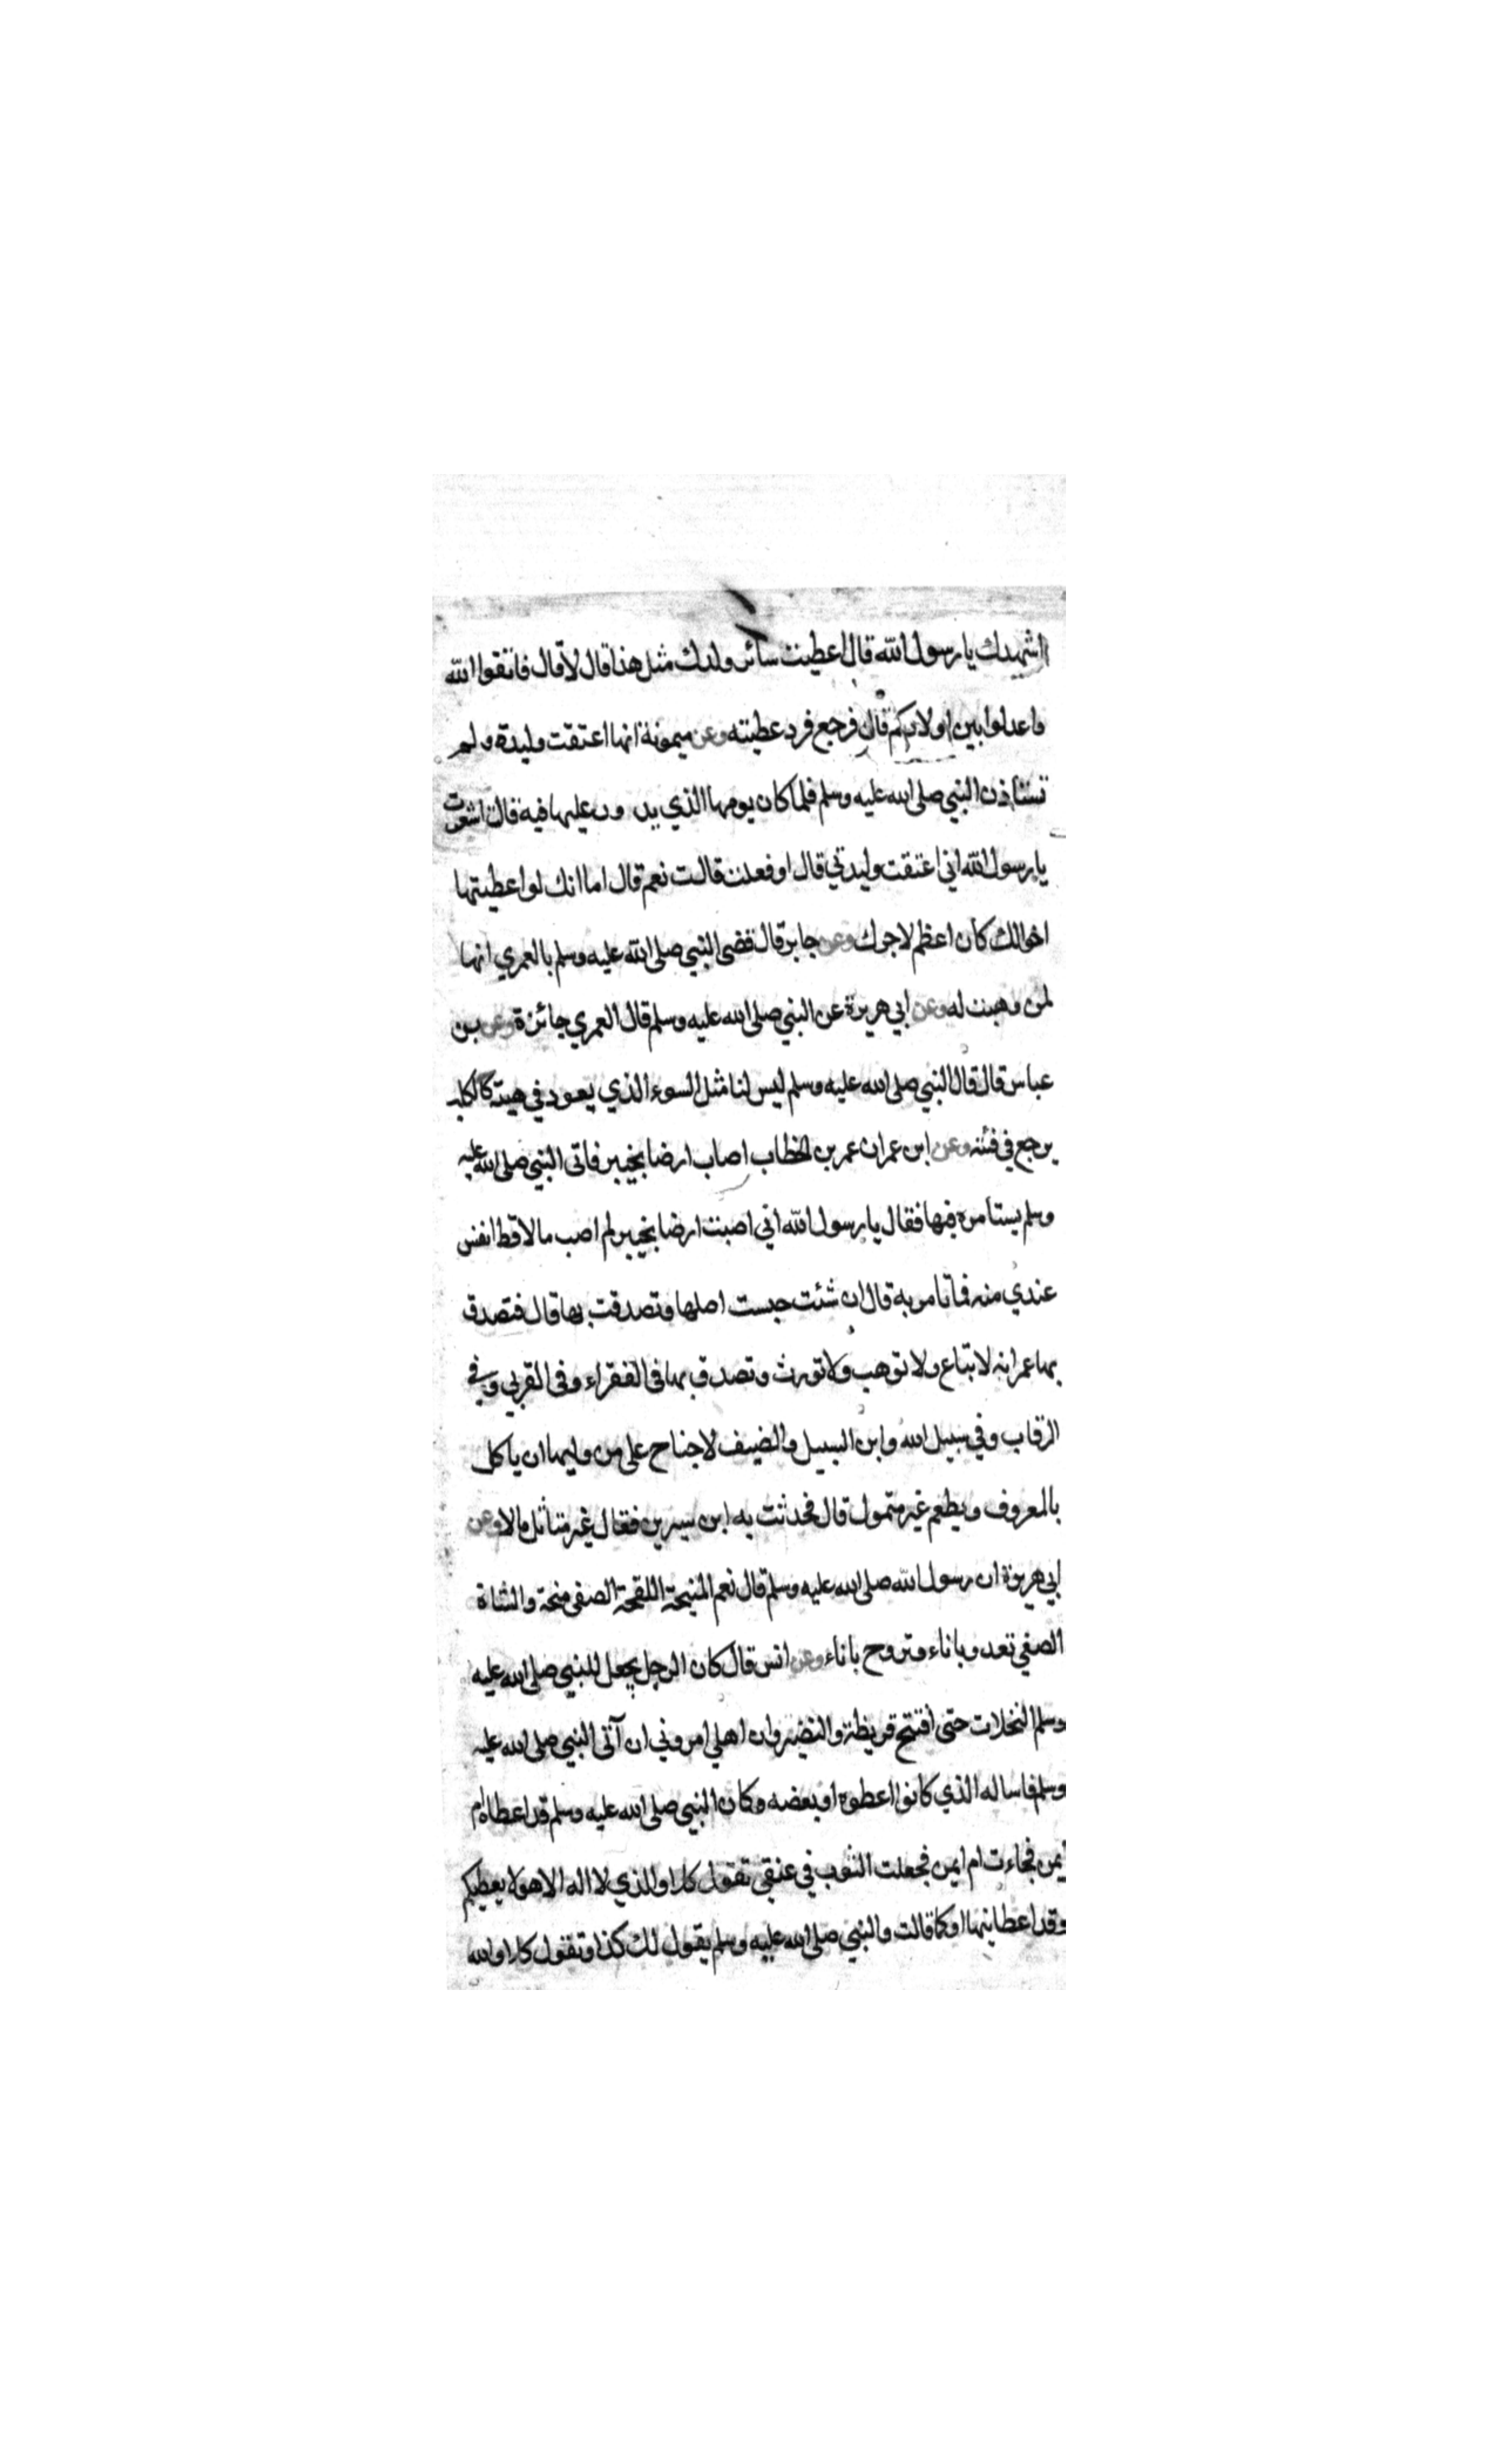 اشهدك يا رسول الله قال اعطيت سائر ولدك مثل هذا قال لا قال فاتقوا الله
واعدلوا بين اولادكم قال فرجع فرد عطيته وعن ميمونة انها اعتقت وليدة ولم
تستأذن النبي صلى الله عليه وسلم فلما كان يومها الذي يدور عليها فيه قالت اشعرت
يا رسول الله اني اعتقت وليدتي قال اوفعلت قالت نعم قال اما انك لو اعطيتها
اخوالك كان اعظم لاجرك وعن جابر قال قضى النبي صلى الله عليه وسلم بالعمري انها
لمن وهبت له وعن ابي هريرة عن النبي صلى الله عليه وسلم قال العمري جائزة وعن بن
عباس قال قال النبي صلى الله عليه وسلم ليس لنا مثل السوء الذي يعود في هبته كالكلب
يرجع في قئه وعن ابن عمر ان عمر بن الخطاب اصاب ارضا بخيبر فاتى النبي صلى الله عليه
وسلم يستأمره فيها فقال يا رسول الله اني اصبت ارضا بخيبر لم اصب مالا قط انفس
عندي منه فما تامر به قال ان شئت حبست اصلها وتصدقت بها قال فتصدق
بها عمر انه لا يباع ولا توهب ولا تورث وتصدق بها في الفقراء وفي القربي وفي
الرقاب وفي سبيل الله وابن السبيل والضيف لا جناح على من وليها ان ياكل
بالمعروف ويطعم غير متمول قال فحدثت به ابن سيرين فقال غير متأثل مالا وعن
ابي هريرة ان رسول الله صلى الله عليه وسلم قال نعم المنيحة اللقحة الصفي منحة والشاة
الصفي تغدو باناء وتروح باناء وعن انس قال كان الرجل يجعل للنبي صلى الله عليه
وسلم النخلات حتى افتتح قريظة والنضير وان اهلي امروني ان آتى النبي صلى الله عليه
وسلم فاساله الذي كانوا اعطوه او بعضه وكان النبي صلى الله عليه وسلم قد اعطاه ام
ايمن فجاءت ام ايمن فجعلت الثوب في عنقي تقول كلا والذي لا اله الا هو لا يعطيكم
وقد اعطانيها او كما قالت والنبي صلى الله عليه وسلم يقول لك كذا وتقول كلا والله